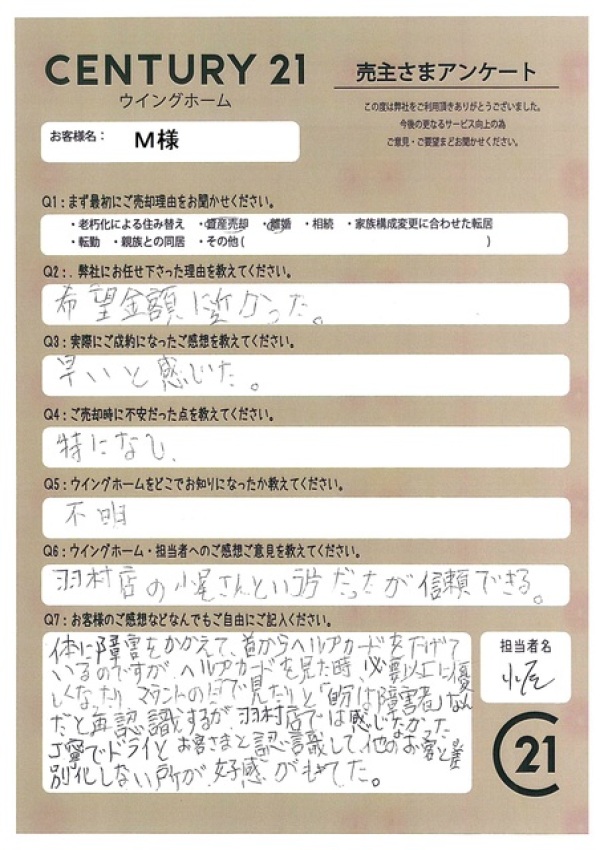 CENTURY 21
ウイングホーム
売主さまアンケート
この度は弊社をご利用頂きありがとうございました。
今後の更なるサービス向上の為
ご意見・ご要望をお聞かせください。
お客様名： M様
Q1：まず最初にご売却理由をお聞かせください。
・老朽化による住み替え ・資産売却 ・離婚 ・相続 ・家族構成変更に合わせた転居
・転勤 ・親族との同居 ・その他 ( )
Q2：. 弊社にお任せ下さった理由を教えてください。
希望金額に近かった。
Q3：実際にご成約になったご感想を教えてください。
早いと感じた。
Q4：ご売却時に不安だった点を教えてください。
特になし、
Q5：ウイングホームをどこでお知りになったか教えてください。
不明
Q6：ウイングホーム・担当者へのご感想ご意見を教えてください。
羽村店の小尾さんという方だったが信頼できる。
Q7：お客様のご感想などなんでもご自由にご記入ください。
体に障害をかかえて、首からヘルプカードを下げて
いるのですが、ヘルプカードを見た時、必要以上に優
しくなったり マウントの目で見たりと「自分は障害者」なん
だと再認識するが 羽村店では感じなかった
丁寧でドライと お客さまと認識して 他のお客と差
別化しない所が 好感がもてた。
担当者名
小尾
C21